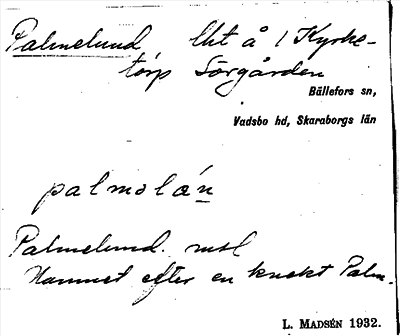 Palmelund lht å 1 Kyrke-
torp Sörgården
Bällefors sn,
Vadsbo hd, Skaraborgs län
palmolán
Palmelund. msl
Namnet efter en knekt Palm.
L. MADSÉN 1932.